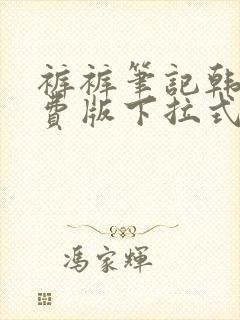 裤裤筆記韩
費版下拉式
冯家輝